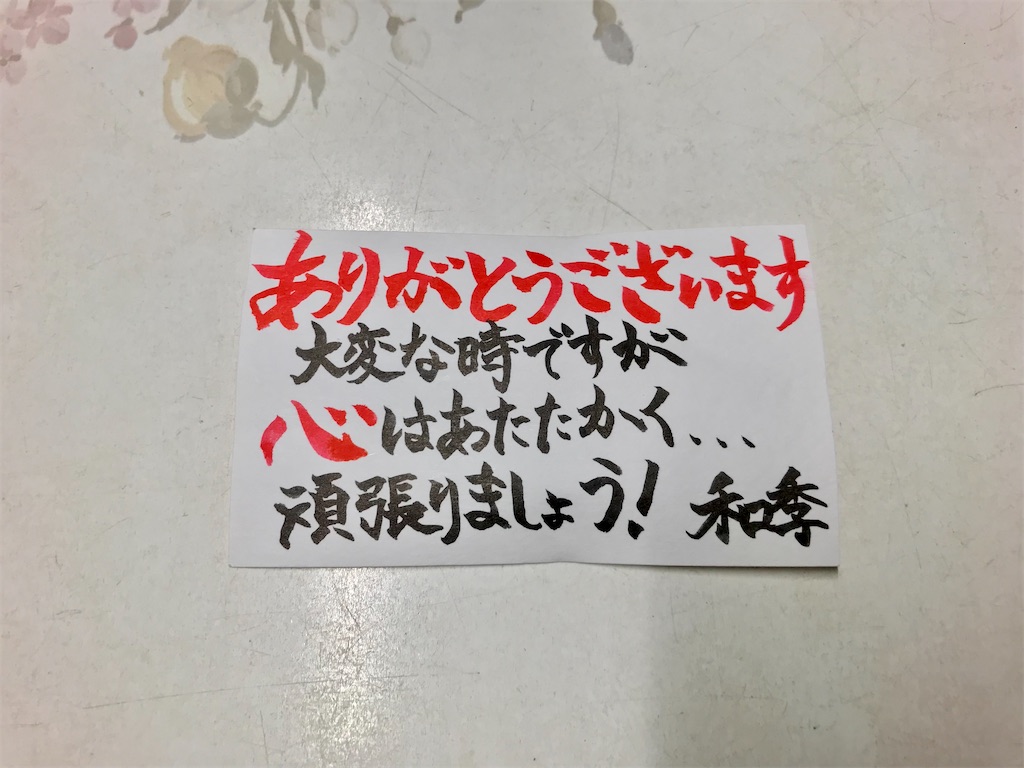 ありがとうございます
大変な時ですが
心はあたたかく...
頑張りましょう! 和季